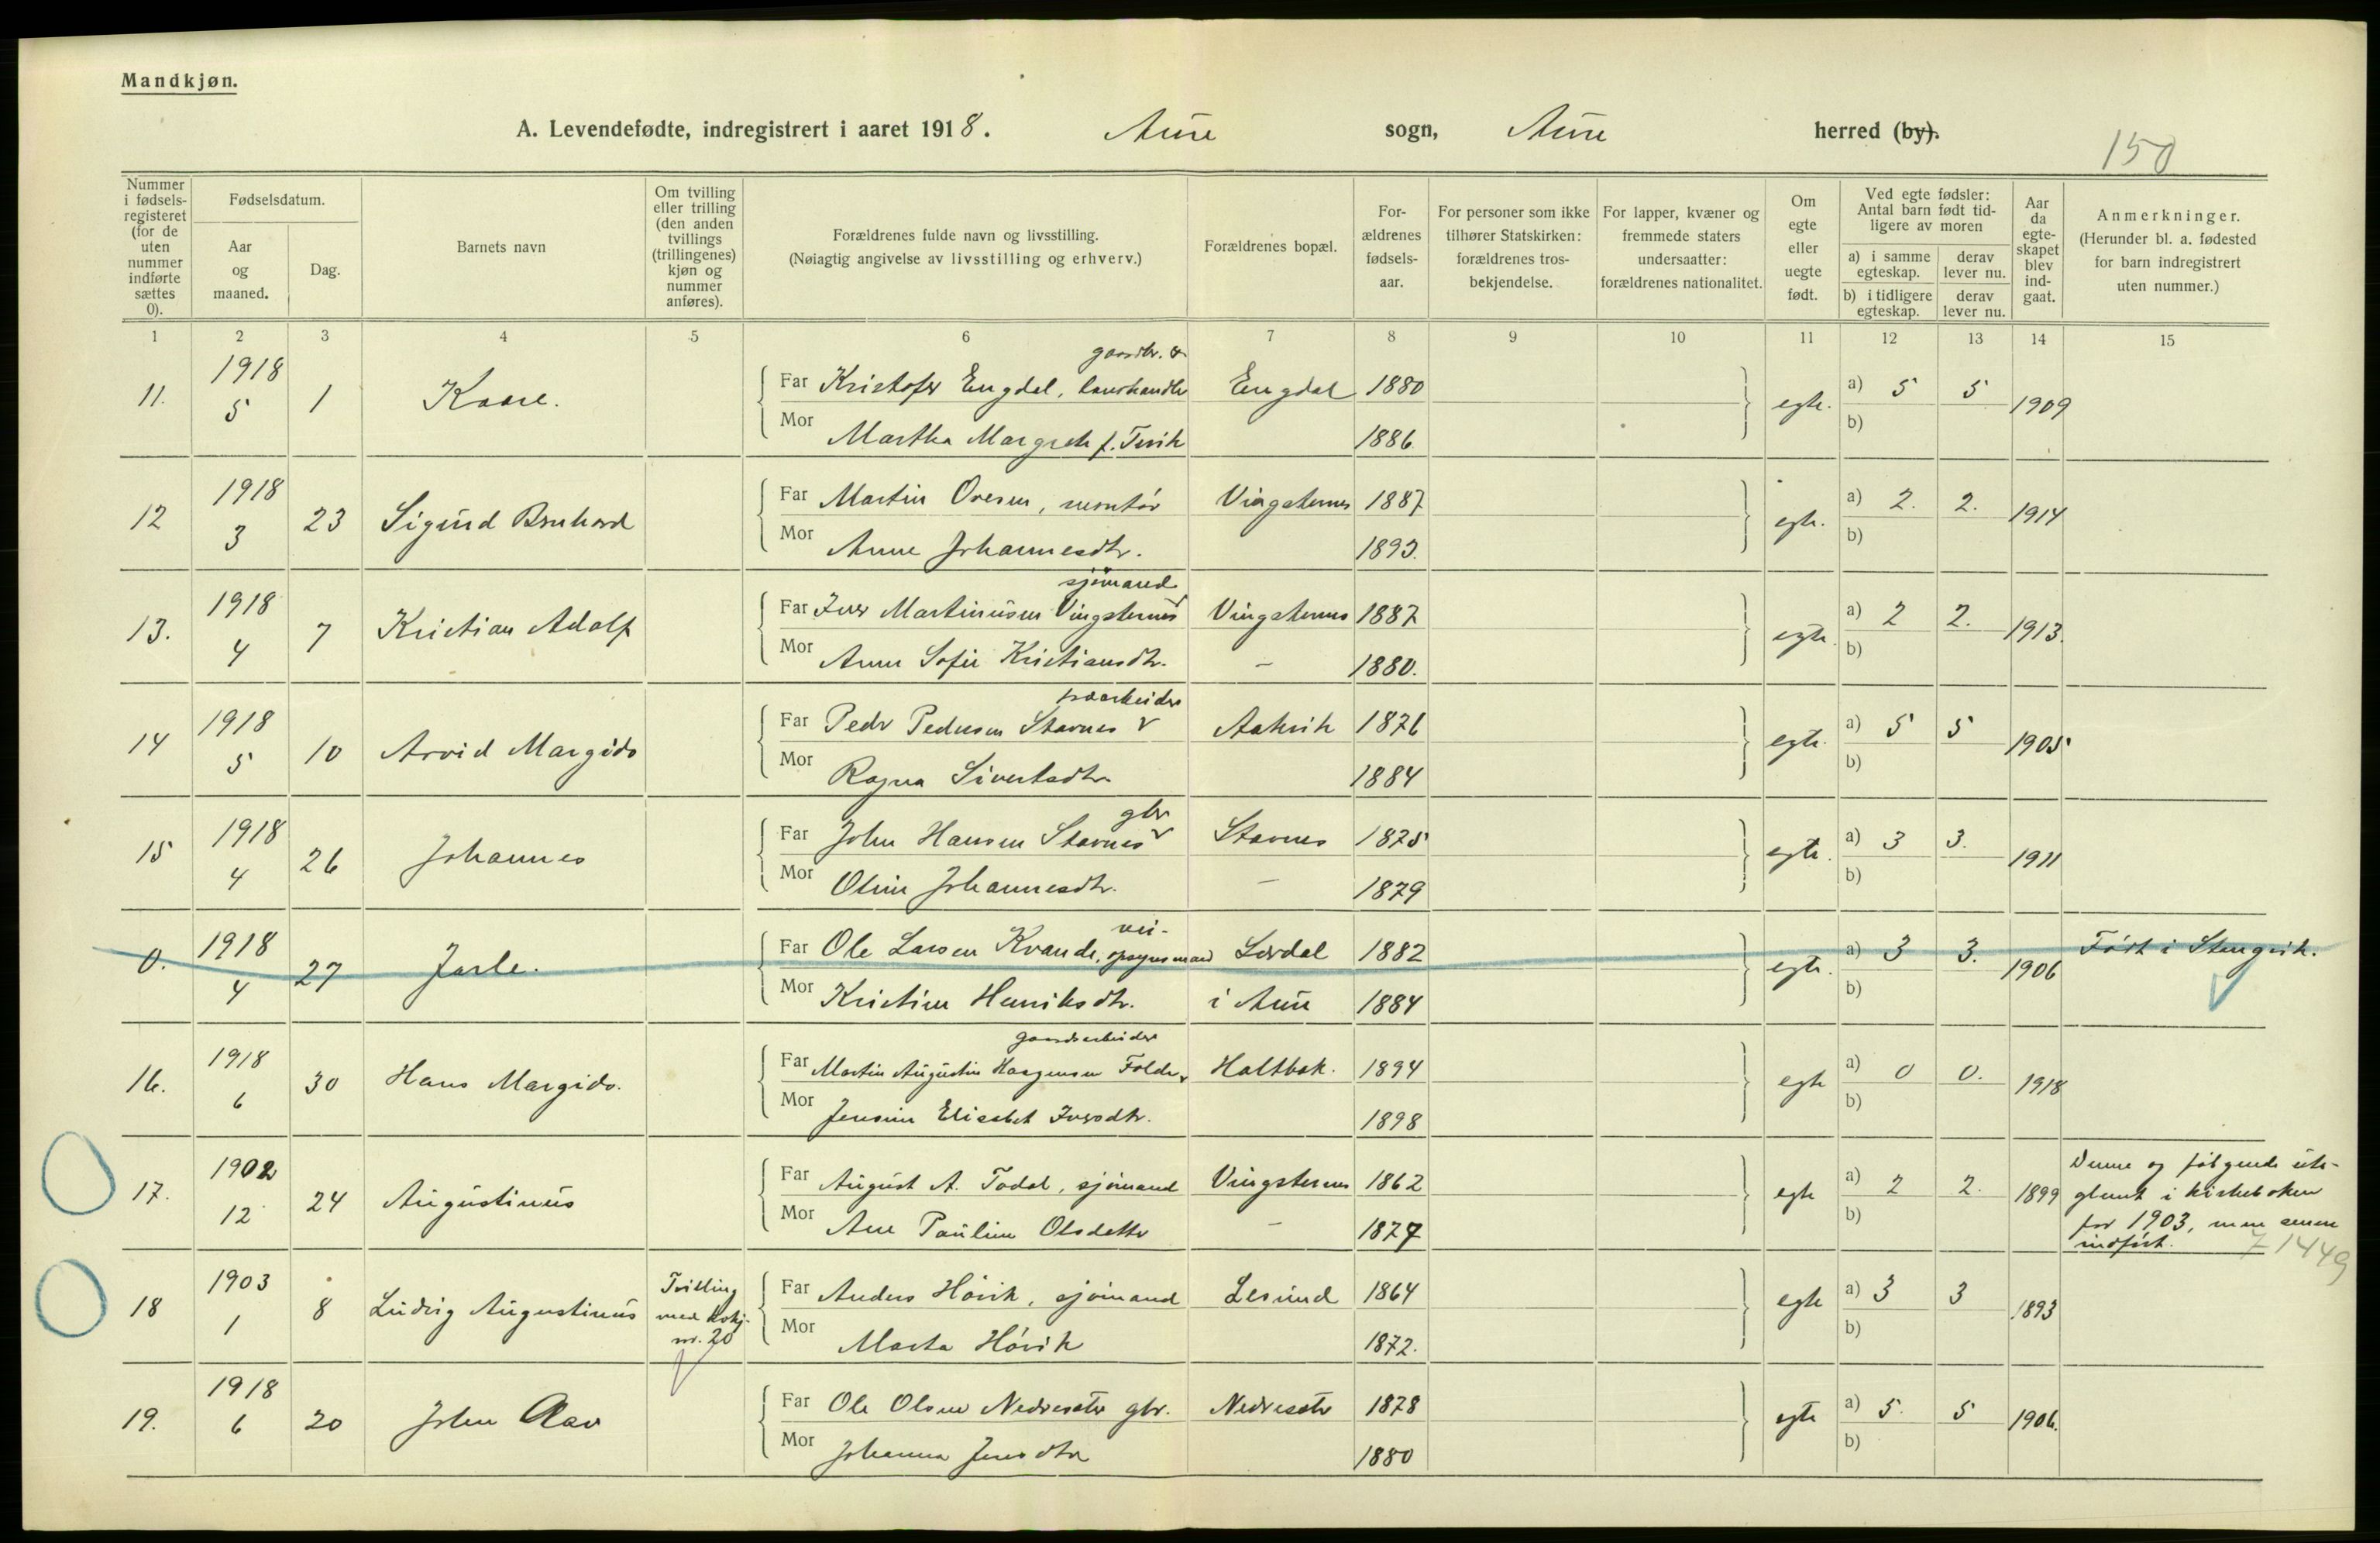 Mandkjøn.
A. Levendefødte, indregistrert i aaret 1918. Aure sogn, Aure herred (by).
150
Nummer i fødsels-registeret (for de uten nummer indførte sættes 0).
Fødselsdatum.
Aar og maaned.
Dag.
Barnets navn
Om tvilling eller trilling (den anden tvillings (trillingenes) kjøn og nummer anføres).
Forældrenes fulde navn og livsstilling.
(Nøiagtig angivelse av livsstilling og erhverv.)
Forældrenes bopæl.
For-ældrenes fødsels-aar.
For personer som ikke tilhører Statskirken: forældrenes tros-bekjendelse.
For lapper, kvæner og fremmede staters undersaatter: forældrenes nationalitet.
Om egte eller uegte født.
Ved egte fødsler: Antal barn født tid-ligere av moren
a) i samme egteskap.
derav lever nu.
b) i tidligere egteskap.
derav lever nu.
Aar da egte-skapet blev ind-gaat.
Anmerkninger.
(Herunder bl. a. fødested for barn indregistrert uten nummer.)
1 2 3 4 5 6 7 8 9 10 11 12 13 14 15
gaardbr. &
11. 1918 5 1 Kaare. Far Kristofer Engdal, Engdal 1880 egte. a) 5 5 1909
Mor Martha Margrete f. 1886 b)
12 1918 3 23 Sigurd Bernhard Far Martin Ovesen, Vingsternes 1887 egte. a) 2. 2. 1914
Mor Anne Johannesdtr. 1893. b)
sjømand
13. 1918 4 7 Kristian Adolf Far Iver Martinusen Vingsternes Vingsternes 1887 egte. a) 2 2. 1913.
Mor Anne Sofie Kristiansdtr. – 1880. b)
14 1918 5 10 Arvid Margido Far Peder Pedersen Stavnes Aakvik 1876 egte. a) 5 5 1905
Mor Ragna Sivertsdtr 1884 b)
gbr
15 1918 4 26 Johannes Far John Hansen Stavnes Stavnes 1875 egte. a) 3 3. 1911
Mor Oline Johannesdtr. – 1879 b)
vei-
0. 1918 4 27 Jarle. Far Ole Larsen Kvande, opsynsmand Lerdal 1882 egte. a) 3 3. 1906 Født i Stangvik.
Mor Kristine Henriksdtr. i Aure 1884 b)
gaardsarbeider
16. 1918 6 30 Hans Margido. Far Martin Augustin Folde Holtbak. 1894 egte a) 0 0. 1918
Mor Jensine Elisabet Iversdtr. 1898 b)
17. 1902 12 24 Augustinus Far August A. Todal, sjømand Vingsternes 1862 egte a) 2 2. 1899 Denne og følgende ute-
glemt i kirkeboken
Mor Ane Pauline Olsdatter – 1877 b) for 1903, men senere
indført. 71449
18 1903 1 8 Ludvig Augustinus Tvilling med kvkj. nr. 20 Far Anders Høvik, sjømand Lesund 1864 egte a) 3 3 1893
Mor Marta Høvik 1872. b)
19. 1918 6 20 John Olav Far Ole Olsen Nedresæter gbr. Nedresæter 1878 egte a) 5. 5 1906.
Mor Johanna Jensdtr 1880 b)